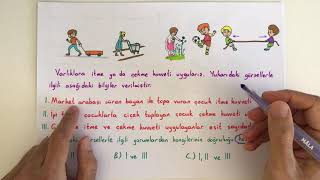 Varlıklara itme ya da çekme kuvveti uygularız. Yukarıdaki görsellerle
ilgili aşağıdaki bilgiler verilmiştir.
I. Market arabası süren bayan ile topa vuran çocuk itme kuvveti
II. İp çocuklarla çiçek toplayan çocuk çekme kuvveti
III. itme ve çekme kuvveti uygulayanlar eşit sayıdadır
görsellerle ilgili yorumlardan hangilerinin doğruluğu
B) I ve III
C) I, II ve III